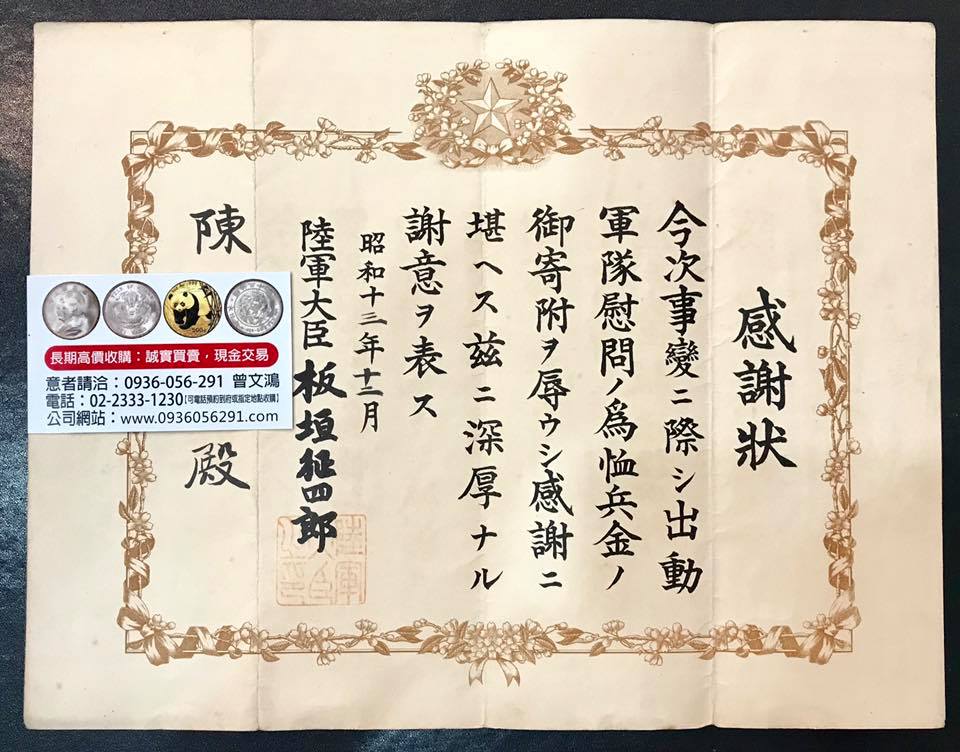 感謝狀
今次事變ニ際シ出動
軍隊慰問ノ爲恤兵金ノ
御寄附ヲ辱ウシ感謝ニ
堪ヘス兹ニ深厚ナル
謝意ヲ表ス
昭和十三年十二月
陸軍大臣 板垣征四郎
陳
殿
長期高價收購：誠實買賣，現金交易
意者請洽：0936-056-291 曾文鴻
電話：02-2333-1230【可電話預約到府或指定地點收購】
公司網站：www.0936056291.com